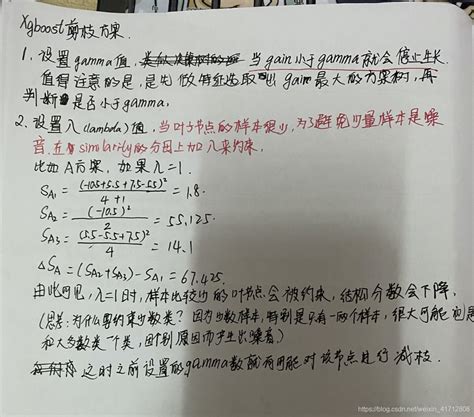 Xgboost剪枝方案.
1. 设置gamma值, 当gain小于gamma就会停止生长.
值得注意的是,是先做特征选取出gain最大的方案树,再
判断是否小于gamma。
2. 设置λ(lambda)值,当叶子节点的样本很少,为了避免少量样本是噪
音.在similarity的分母上加入来约束.
比如A方案,如果λ=1.
S_A1 = (-10.5+5.5+7.5-5.5)² / 4+1 = 1.8.
S_A2 = (-10.5)² / 2 = 55.125.
S_A3 = (5.5-5.5+7.5)² / 4 = 14.1
ΔS_A = (S_A2+S_A3)-S_A1 = 67.425.
由此可见,λ=1时,样本比较少的叶节点会被约束,结构分数会下降,
(思考:为什么要约束少数类?因为少数样本,特别是只有一两个样本,很大可能
和大多数类一个类,因个别原因而产生出噪音)
这时之前设置的gamma数额有可能对该节点进行减枝.
https://blog.csdn.net/weixin_41712808